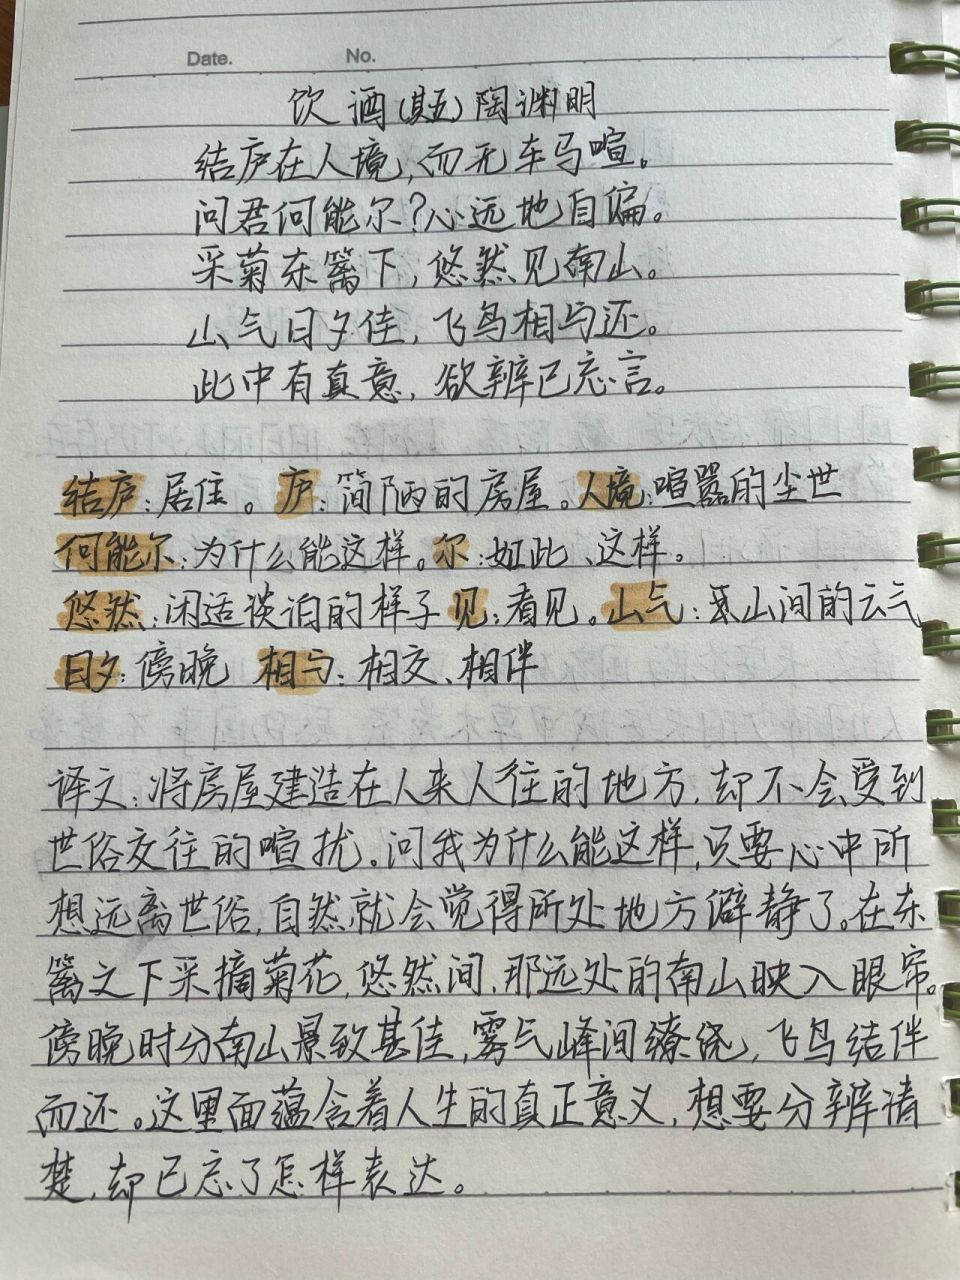 Date. No.
饮酒(其五)陶渊明
结庐在人境,而无车马喧。
问君何能尔?心远地自偏。
采菊东篱下,悠然见南山。
山气日夕佳,飞鸟相与还。
此中有真意,欲辨已忘言。
结庐:居住。庐:简陋的房屋。人境:喧嚣的尘世
何能尔:为什么能这样。尔:如此、这样。
悠然:闲适淡泊的样子 见:看见。山气:山间的云气
日夕:傍晚 相与:相交、相伴
译文:将房屋建造在人来人往的地方,却不会受到
世俗交往的喧扰。问我为什么能这样,只要心中所
想远离世俗,自然就会觉得所处地方僻静了。在东
篱之下采摘菊花,悠然间,那远处的南山映入眼帘。
傍晚时分南山景致甚佳,雾气峰间缭绕,飞鸟结伴
而还。这里面蕴含着人生的真正意义,想要分辨清
楚,却已忘了怎样表达。